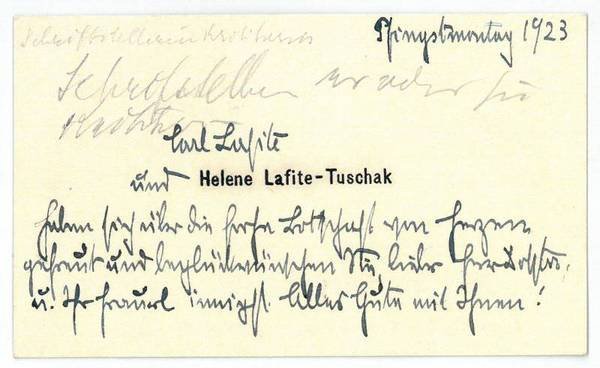 Schriftstellerin Kritikerin
Pfingstmontag 1923
Schriftstellerin
Carl Lafite
und Helene Lafite-Tuschak
haben sich über die frohe Botschaft von Herzen
gefreut und beglückwünschen Sie, lieber Herr
u. Ihr Frauerl innigst. Alles Gute mit Ihnen!